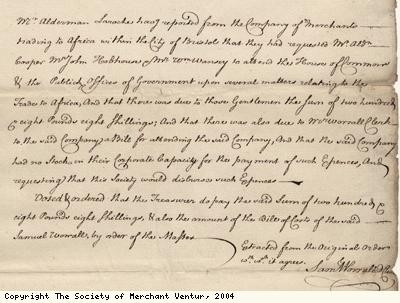 Mr. Alderman Laroche hav.g reported from the Company of Merchants
trading to Africa within the City of Bristol that they had requested Mr. Aldn.
Cooper Mr. John Hobhouse & Mr. Wm. Wansey to attend the House of Commons
& the Publick Offices of Government upon several matters relating to the
Trade to Africa, And that there was due to those Gentlemen the Sum of two hundred &
eight Pounds eight Shillings; And that there was also due to Mr. Worrall Clerk
to the said Company, a Bill for attending the said Company, And that the said Company
had no Stock in their Corporate Capacity for the payment of such Expences, And
requesting that this Society would disburse such Expences
Voted & ordered that the Treasurer do pay the said Sum of two hundred &
eight Pounds eight Shillings, & also the amount of the Bill of Costs of the said
Samuel Worrall, by order of the Master
Extracted from the Original Order
wth. wch. it agrees.
Saml. Worrall
Copyright The Society of Merchant Ventur, 2004